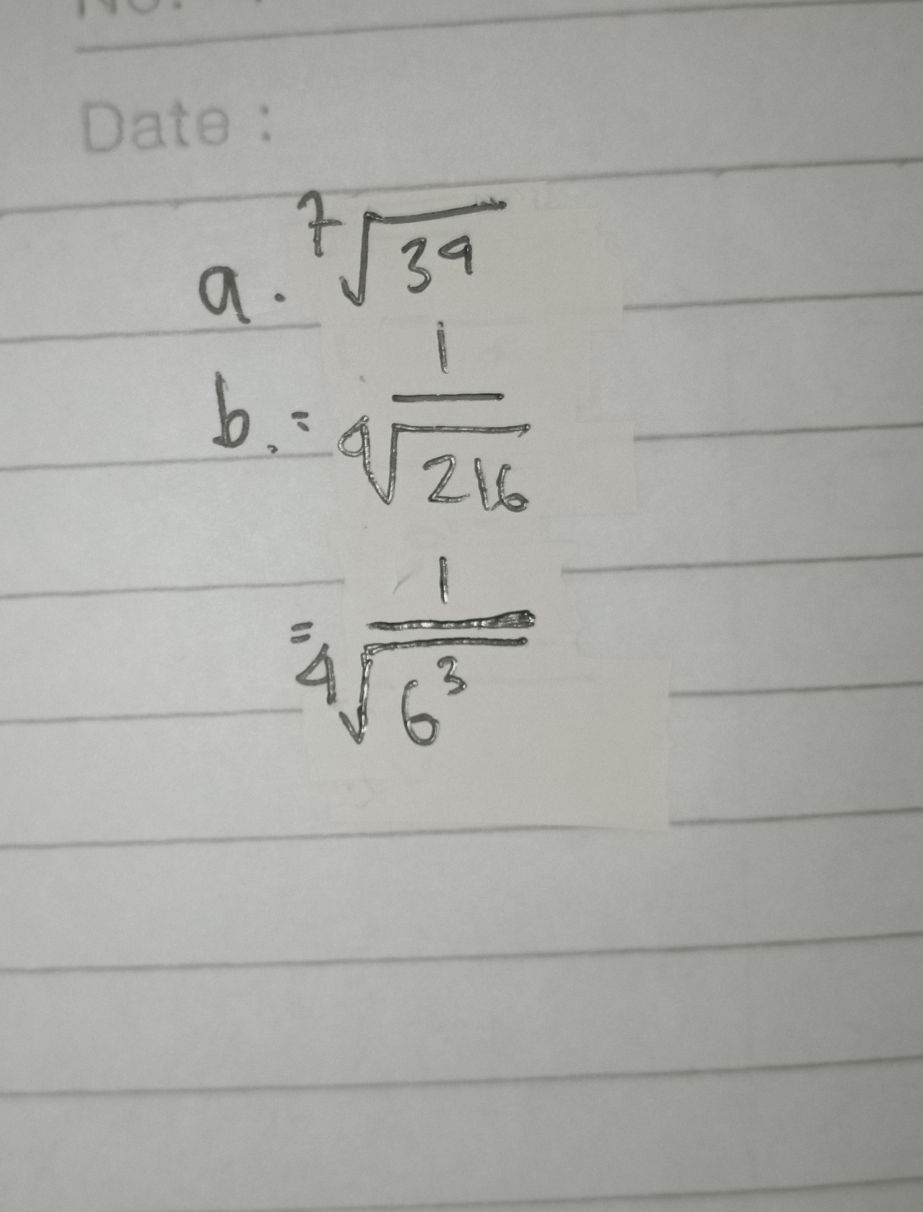 No.
Date :
a. ⁷√39
b. = 1/⁹√216
= 1/⁴√6³